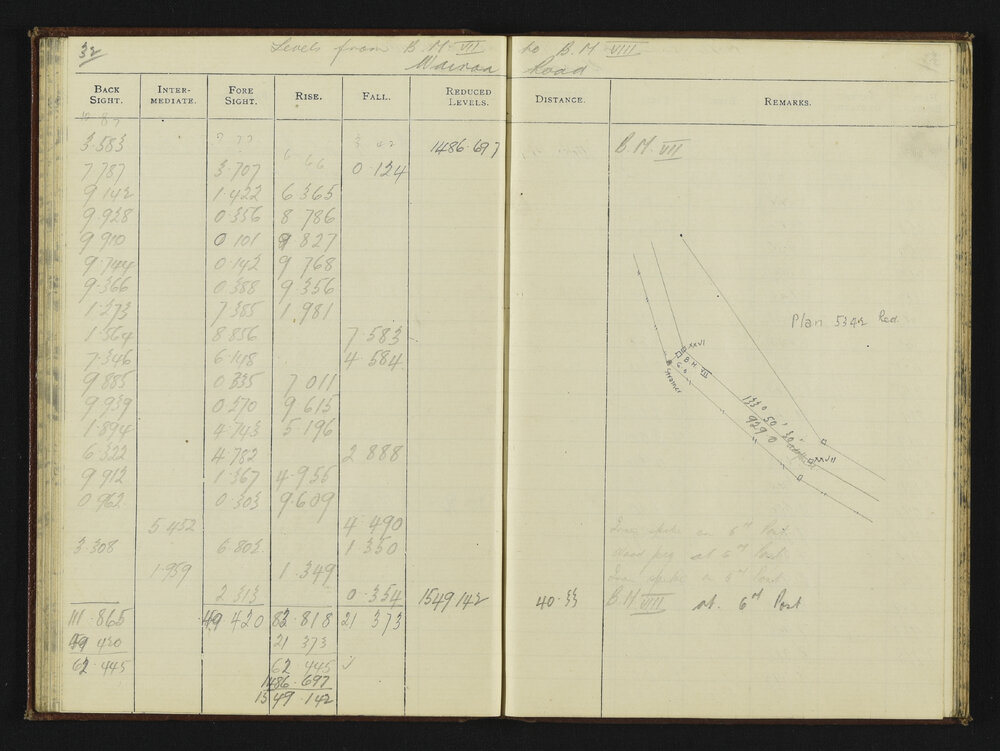 32
Levels from B.M VII to B.M VIII
Wairoa Road
BACK SIGHT. INTER-MEDIATE. FORE SIGHT. RISE. FALL. REDUCED LEVELS. DISTANCE. REMARKS.
3·583 1486·697 B.M VII
7 787 3·707 0 124
9 142 1·422 6 365
9·928 0 356 8 786
9 910 0 101 9 827
9·744 0·142 9 768
9·366 0·388 9 356
1·273 7 385 1·981
1·564 8 856 7·583
7·346 6·148 4·584
9 885 0 335 7 011
9 939 0·270 9 615
1·894 4·743 5·196
6·322 4 782 2 888
9 912 1·367 4·955
0 962 0·303 9·609
5·452 4·490
3·308 6 802 1 350
1·959 1·349
2 313 0·354 1549 142 40·33 B.M VIII at 6" Post
111·865 49 420 83·818 21 373
49 420 21 373
62·445 62·445 √
1486·697
1549·142
Plan 5342 Red.
XXVI
B.M VII
133° 50' 30"
929 0
XXVII